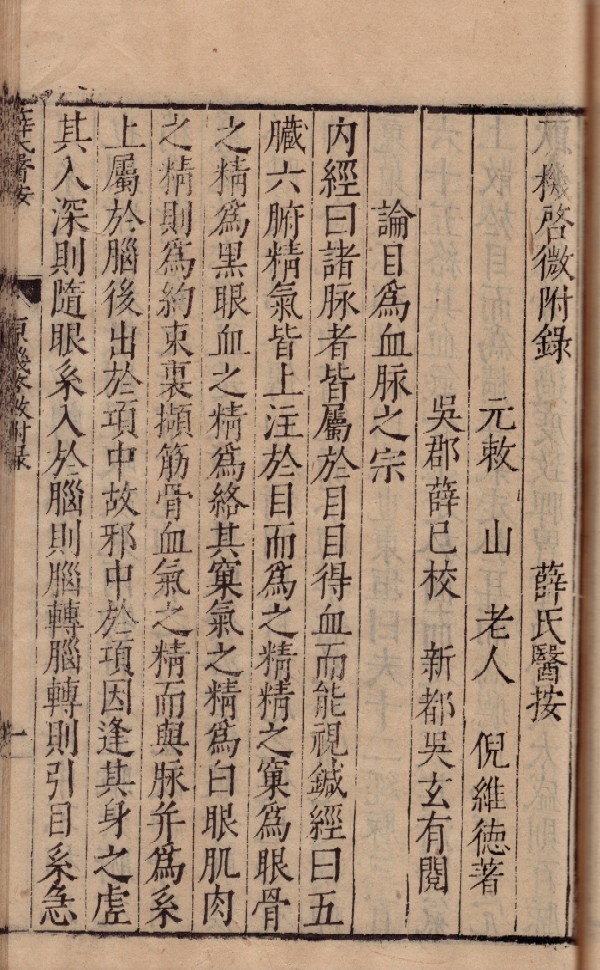 原機啓微附錄 薛氏醫按
元敕 山 老人 倪維德著
吳郡薛已校 新都吳玄有閱
論目爲血脉之宗
內經曰諸脉者皆屬於目目得血而能視鍼經曰五
臟六腑精氣皆上注於目而爲之精精之窠爲眼骨
之精爲黑眼血之精爲絡其窠氣之精爲白眼肌肉
之精則爲約束裹擷筋骨血氣之精而與脉并爲系
上屬於腦後出於項中故邪中於項因逢其身之虛
其入深則隨眼系入於腦則腦轉腦轉則引目系急
薛氏醫按 原機啓微附录 一